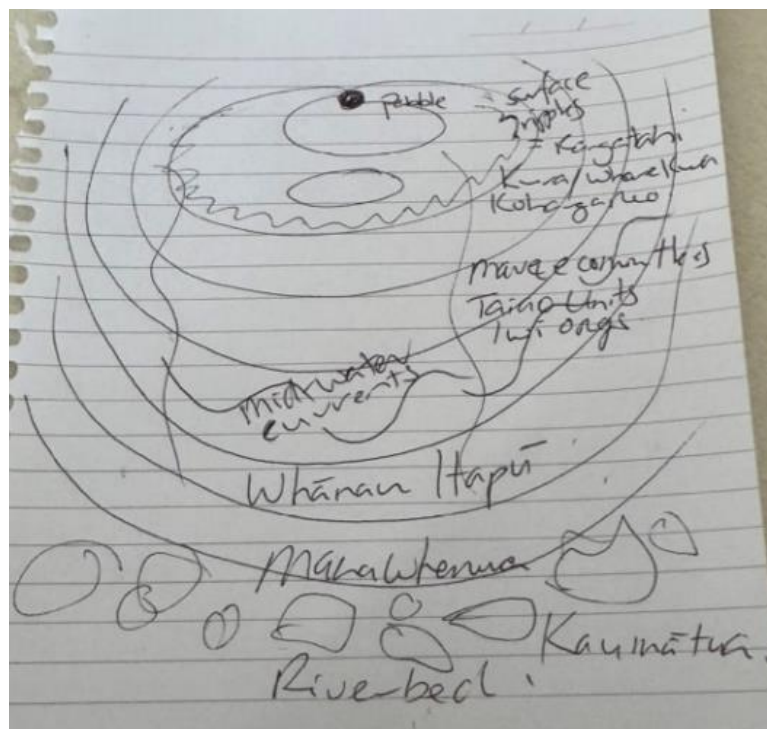 pebble
surface
ripples
= Rangatahi
Kura/wharekura
Kohanga reo
marae committees
Taiao Units
Iwi orgs
mid-water
currents
Whānau Hapū
Manawhenua
Kaumātua
Riverbed.